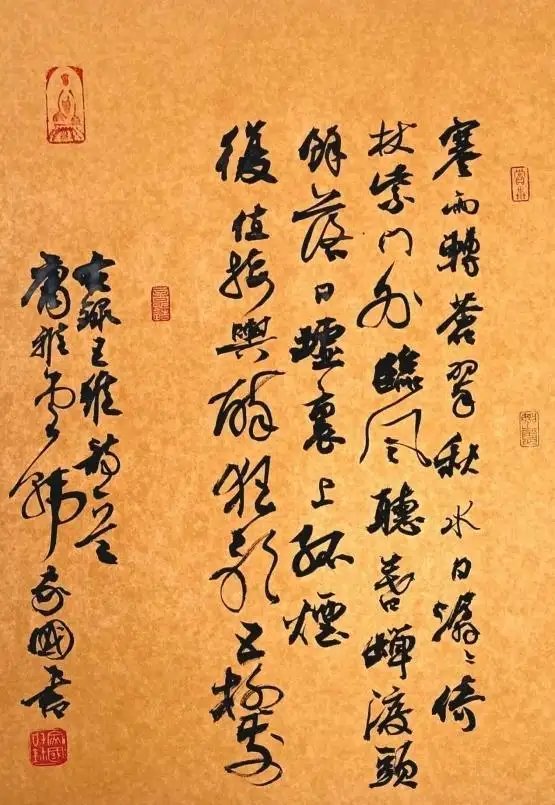 寒轉蒼翠秋水日潺〻倚
杖柴門外臨風聽暮蟬渡頭
餘落日墟裏上孤煙
復值接輿醉狂歌五柳前
右錄王維詩一首
國書